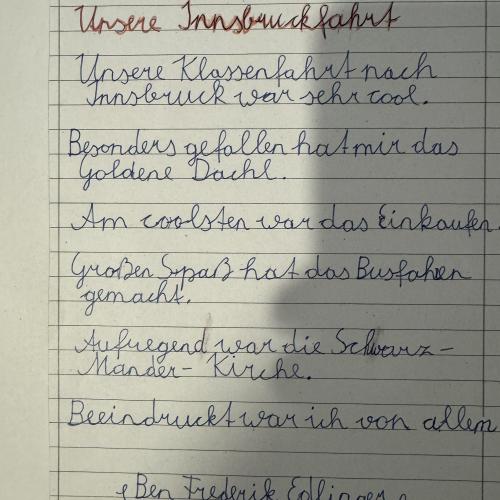 Unsere Innsbruckfahrt
Unsere Klassenfahrt nach
Innsbruck war sehr cool.
Besonders gefallen hat mir das
Goldene Dachl.
Am coolsten war das Einkaufen.
Großen Spaß hat das Busfahren
gemacht.
Aufregend war die Schwarz-
Mander- Kirche.
Beeindruckt war ich von allem
Ben Frederik